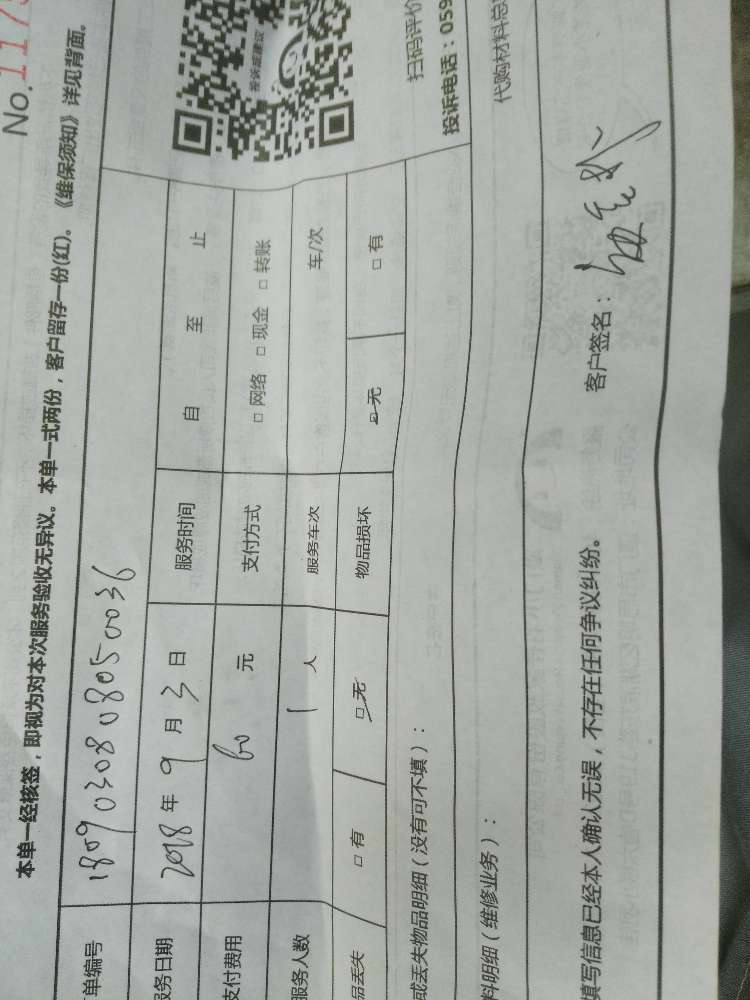 No.117
本单一经核签，即视为对本次服务验收无异议。本单一式两份，客户留存一份(红)。《维保须知》详见背面。
单编号 180903080805 0036
务日期 2018 年 9 月 3 日 服务时间 自 至 止
支付费用 60 元 支付方式 □ 网络 □ 现金 □ 转账
服务人数 1 人 服务车次 车/次
品丢失 □ 有 □ 无 物品损坏 □ 无 □ 有
或丢失物品明细（没有可不填）：
料明细（维修业务）：
投诉或建议
扫码评价
投诉电话：059
代购材料总
填写信息已经本人确认无误，不存在任何争议纠纷。 客户签名：